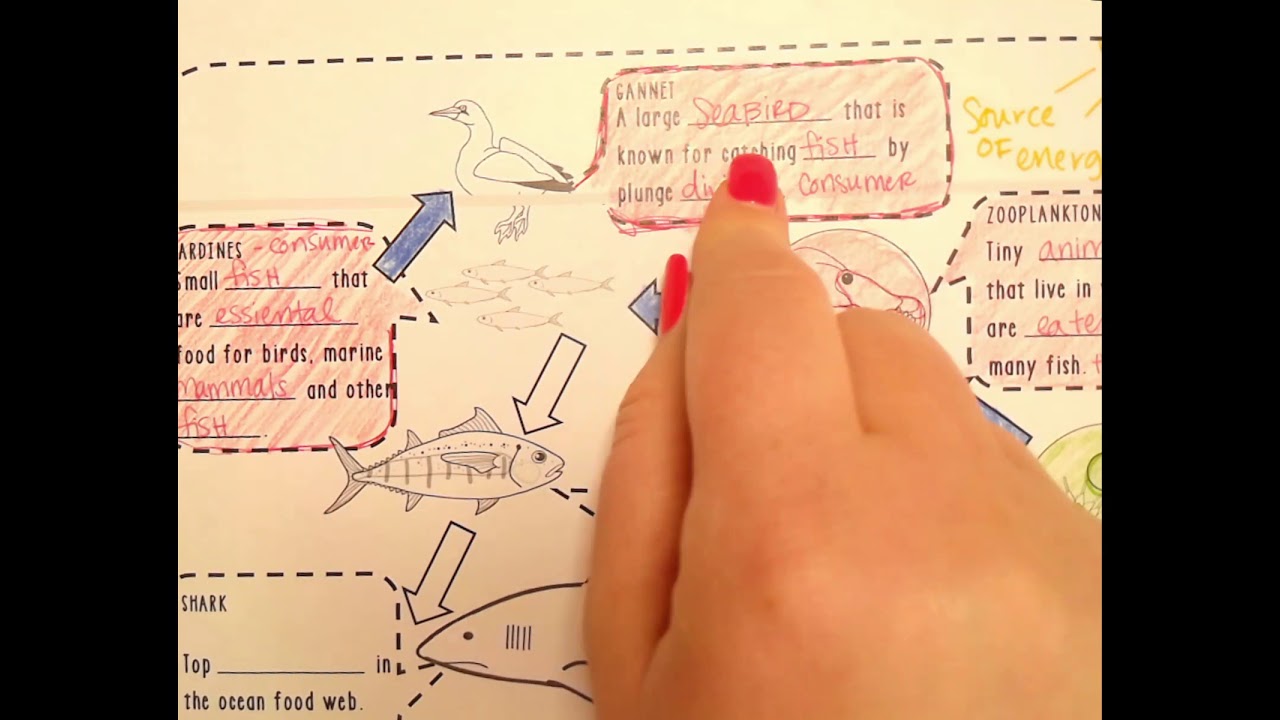 GANNET
A large SEABIRD that is
known for catching fish by
plunge consumer
Source
OF
ARDINES - consumer
Small fish that
are essiental
food for birds, marine
mammals and other
fish.
ZOOPLANKTON
Tiny
that live in
are
many fish.
SHARK
Top ______ in
the ocean food web.